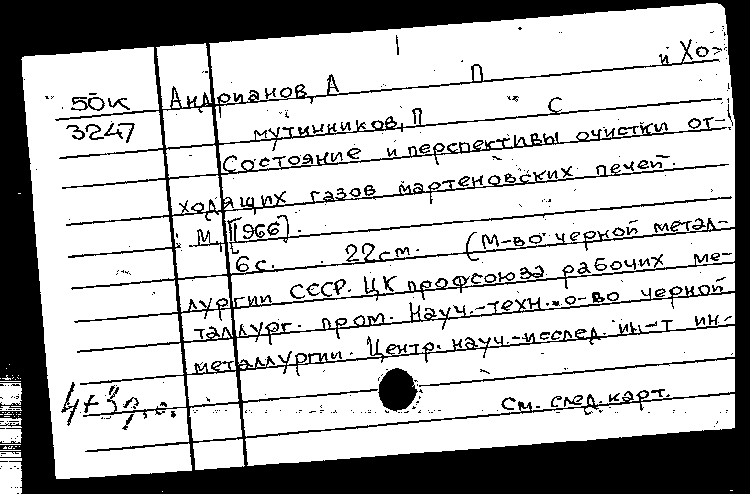 50к Андрианов, А П и Хо-
3247 мутинников, П С
Состояние и перспективы очистки от-
ходящих газов мартеновских печей.
М, [1966].
6с. 22см. (М-во черной метал-
лургии СССР. ЦК профсоюза рабочих ме-
таллург. пром. Науч.-техн. о-во черной
металлургии. Центр. науч.-исслед. ин-т ин-
4+3
см. след. карт.